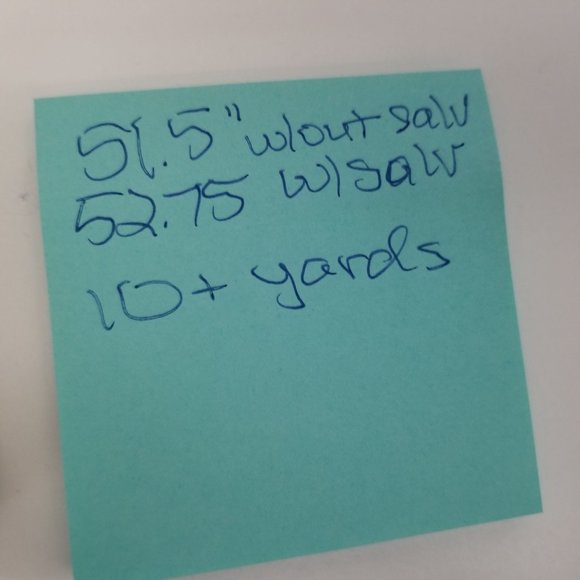 51.5" w/out salv
52.75 w/salv
10+ yards